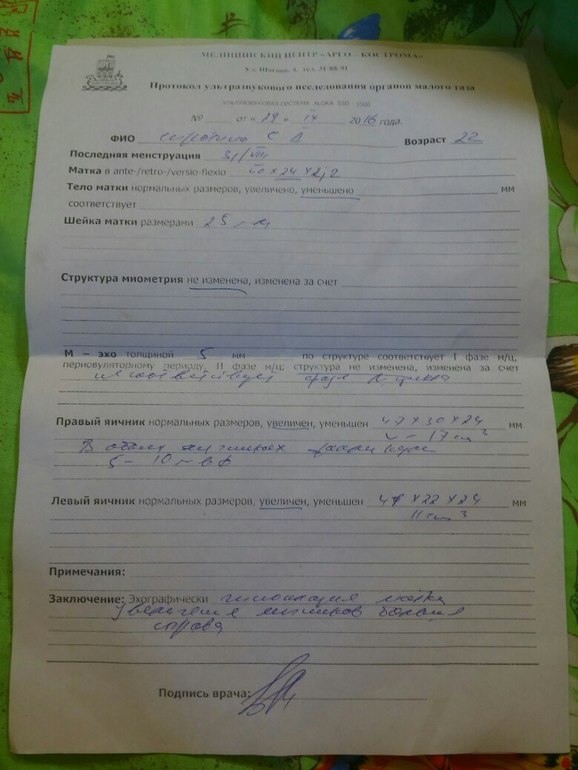 МЕДИЦИНСКИЙ ЦЕНТР «АРГО – КОСТРОМА»
Ул. Шагова, 4, тел. 31-88-91
Протокол ультразвукового исследования органов малого таза
УЛЬТРАЗВУКОВАЯ СИСТЕМА ALOKA SSD - 3500
№ от « 29 » IX 2016 года.
ФИО С Возраст 22
Последняя менструация 31/VIII
Матка в ante-/retro-/versio-flexio
Тело матки нормальных размеров, увеличено, уменьшено мм
соответствует
Шейка матки размерами 25 мм
Структура миометрия не изменена, изменена за счет
М – эхо толщиной 5 мм по структуре соответствует I фазе м/ц,
периовуляторному периоду, II фазе м/ц; структура не изменена, изменена за счет
не соответствует фазе цикла
Правый яичник нормальных размеров, увеличен, уменьшен 47 х 30 х 24 мм
17 см 3
В обоих яичниках
5 - 10
Левый яичник нормальных размеров, увеличен, уменьшен х 22 х 24 мм
11 см 3
Примечания:
Заключение: Эхографически гипоплазия матки
Увеличение яичников больше
справа
Подпись врача: